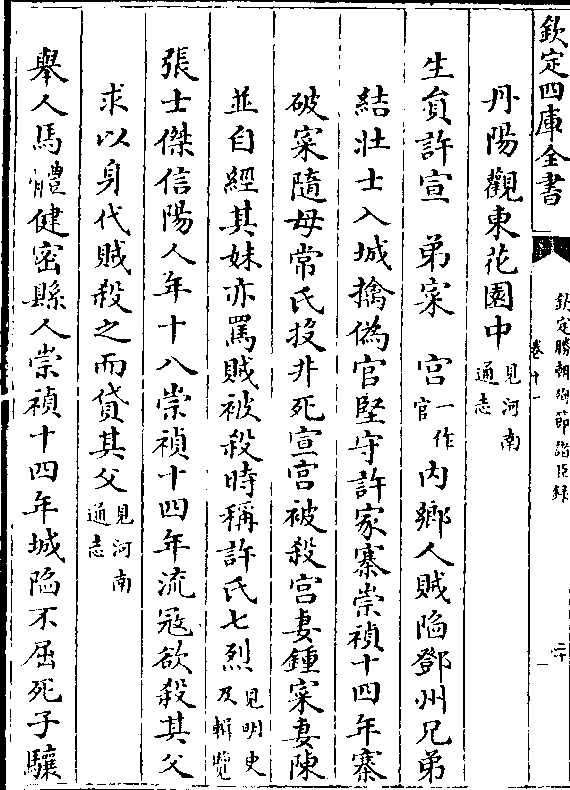 欽定四庫全書
欽定勝朝殉節諸臣錄
卷十一
二十
丹陽觀東花園中見河南通志
生員許宣 弟寀 宮一作官內鄉人賊陷鄧州兄弟
結壯士入城擒偽官堅守許家寨崇禎十四年寨
破寀隨母常氏投井死宣宮被殺宮妻鍾寀妻陳
並自經其妹亦罵賊被殺時稱許氏七烈見明史及輯覽
張士傑信陽人年十八崇禎十四年流寇欲殺其父
求以身代賊殺之而貸其父見河南通志
舉人馬體健密縣人崇禎十四年城陷不屈死子驤